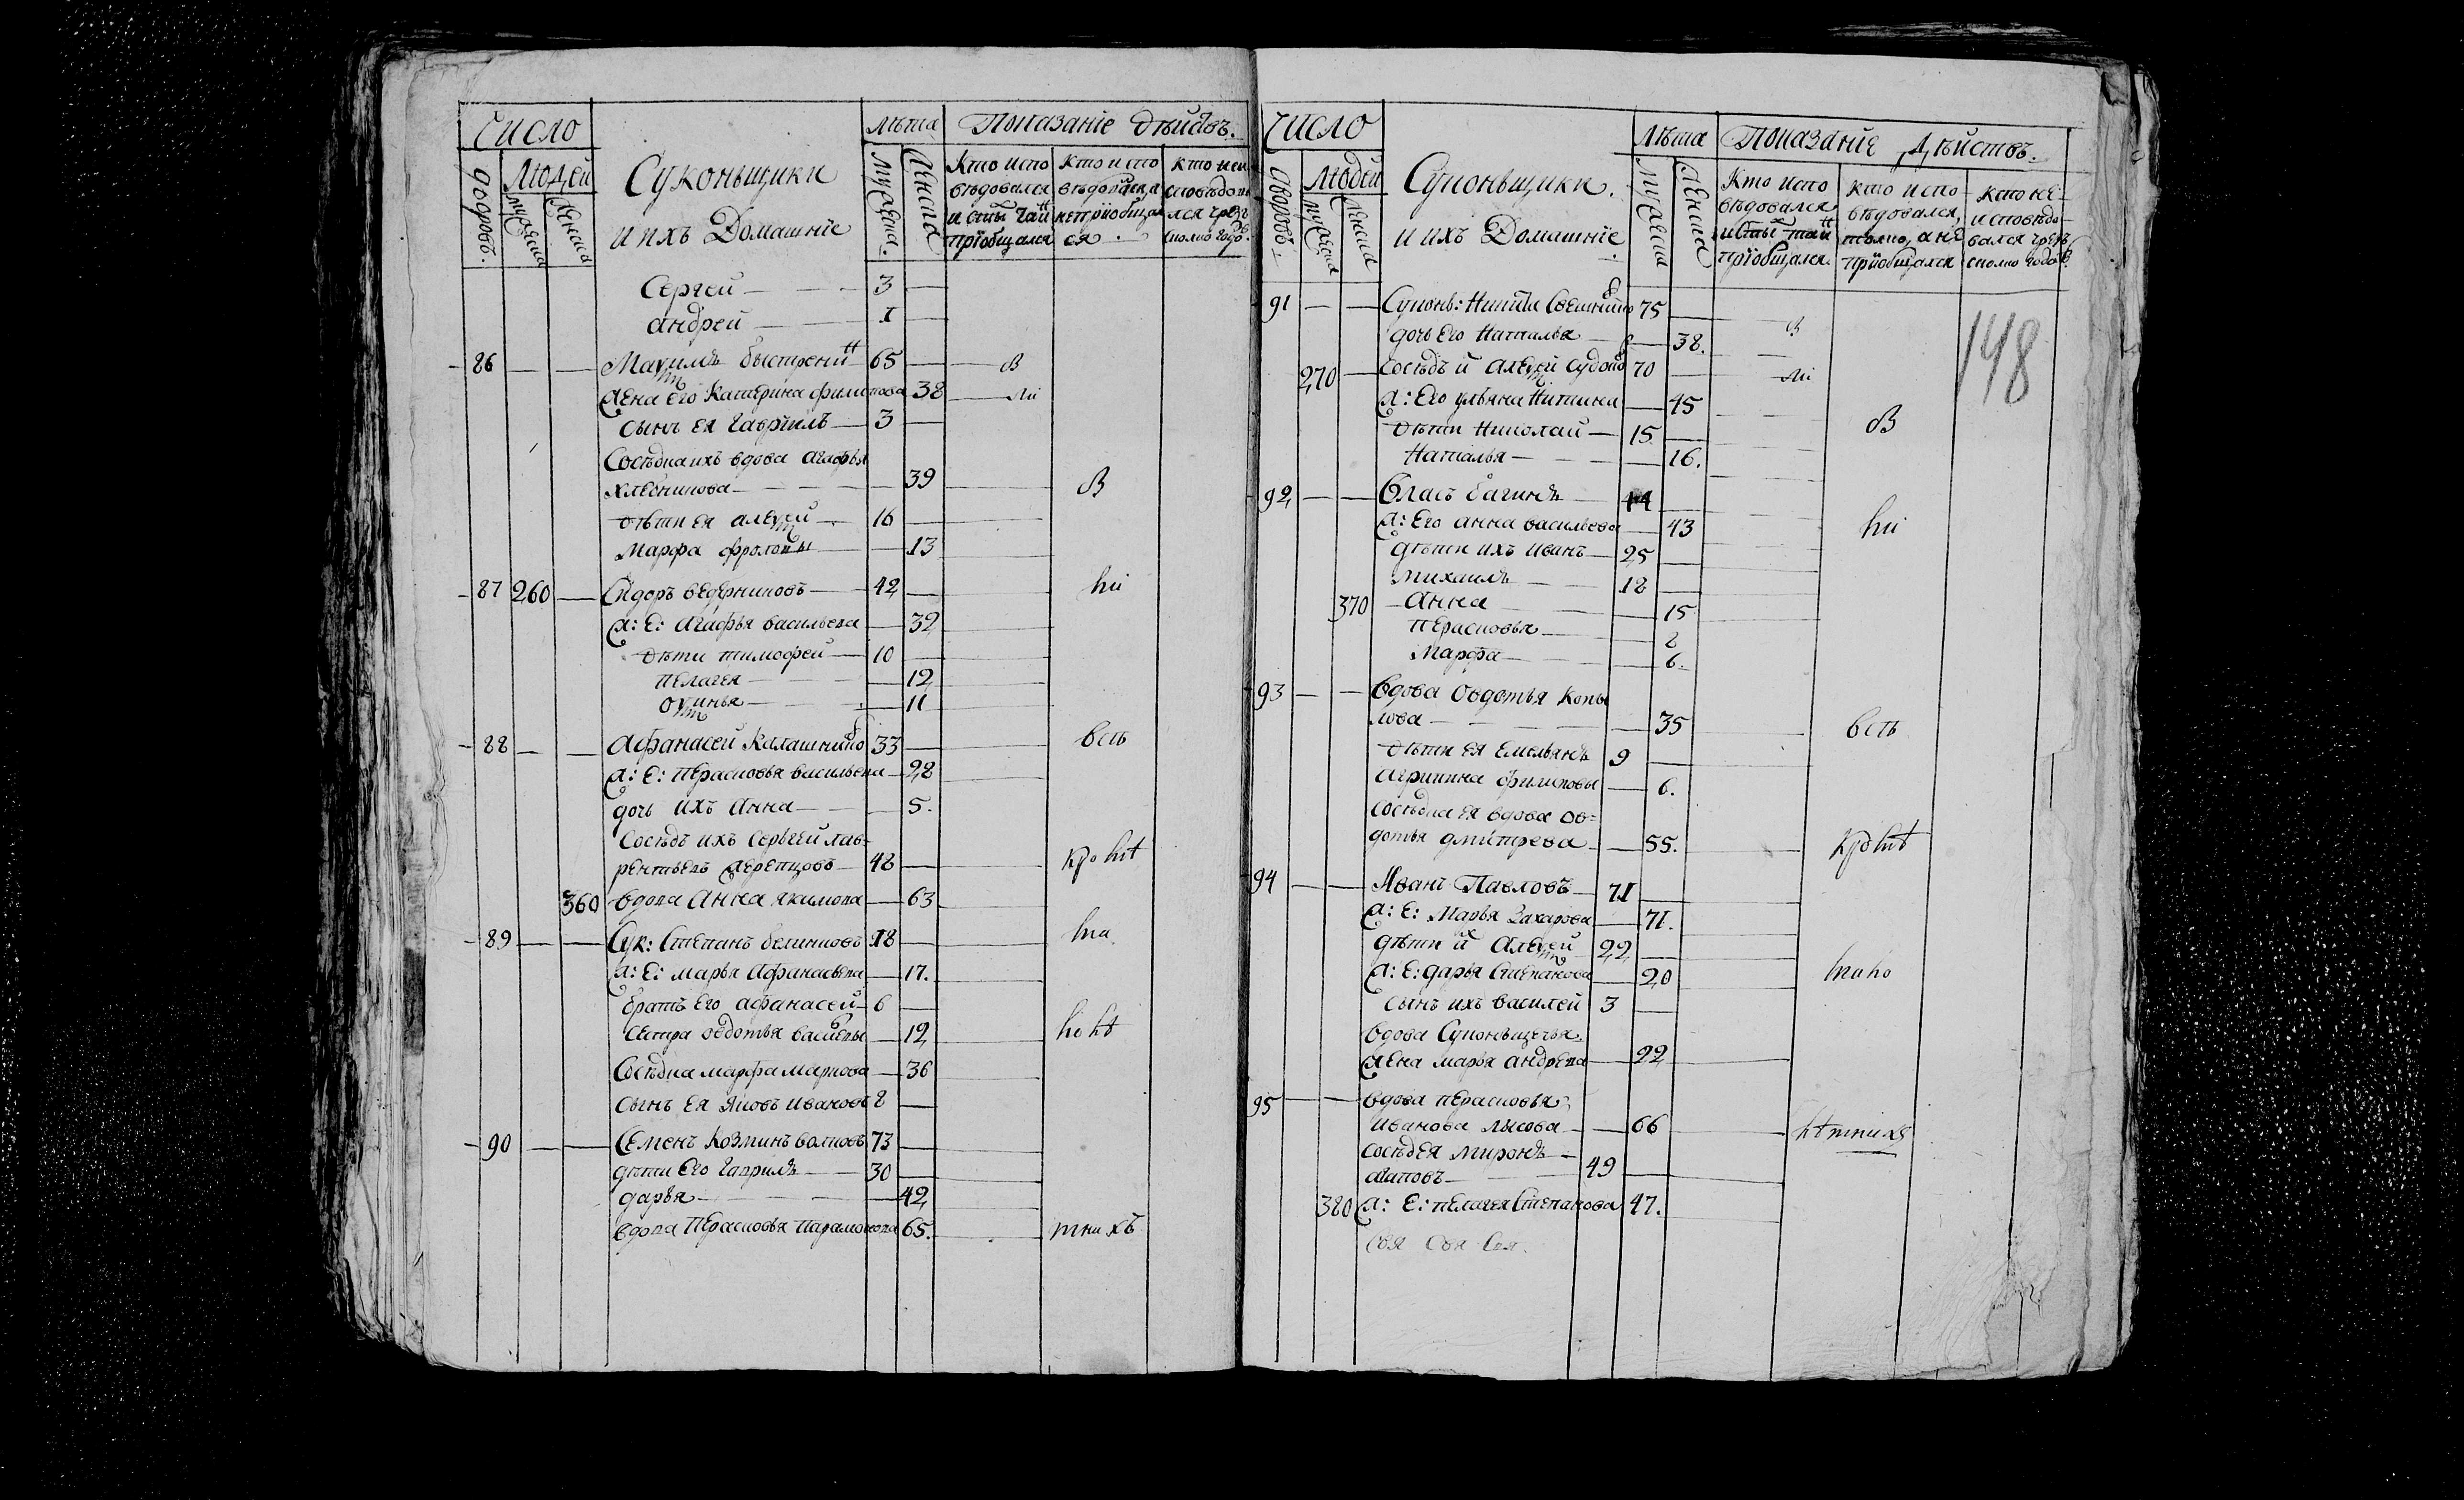 Число
Суконьщики
и ихъ Домашніе
Лѣта
Показаніе дѣйсвъ.
дворовъ.
Людей
мужеска
женска
Мужеска.
Женска
Кто испо
вѣдовался
и стыхъ таин
пріобщался
кто испо
вѣдовался, а
непріобщал
ся
кто неи
сповѣдова
лся чрез
сколко годовъ.
Сергей — 3
андрей — 1
86 — — Маѯимъ быстренин 65 — в
жена его Катерина филипова 38 — ли
сынъ ея гаврилъ — 3 —
Сосѣдка ихъ вдова агафья
хлебникова — 39 в
дѣти ея алеѯей — 16 —
Марфа фроловы — 13
87 260 — Сидоръ ведерниковъ — 42 — ни
ж: е: агафья васильева — 32
дѣти тимофей — 10 —
пелагея — 12
оѯинья — 11
88 — — афанасей калашнико 33 — весь
ж: е: перасковья васильева — 28
дочь ихъ анна — 5.
Сосѣдъ ихъ сергей лав-
рентьевъ жеребцовъ — 48 — кромѣ
360 вдова анна якимова — 63
89 — — Сук: Степанъ беликовъ 18 — на
ж: е: марья афанасьева — 17.
братъ его афанасей — 6 —
сестра овдотья васильевы — 12 но нѣ
Сосѣдка марфа маркова — 36
сынъ ея яковъ ивановъ 8 —
90 — — Семенъ козминъ волковъ 73 —
дѣти его гаврилъ — 30 —
дарья — 42
вдова перасковья парамонова 65. тни хъ
Число
Суконьщики.
и ихъ Домашніе.
Лѣта
Показаніе дѣйствъ.
Дворовъ.
людей
мужеска
женска
Мужеска
Женска
Кто испо
вѣдовался
и стыхъ таин
пріобщался.
кто испо-
вѣдовался,
толко, а не
пріобщался
кто не-
исповѣдо-
вался чрезъ
сколко годовъ.
148
91 — — Суконь: Никита 75 — в
дочь его наталья — 38.
270 — сосѣдъ и алеѯей судоко 70 — ли
ж: его ульяна никитина — 45
дѣти николай — 15 — в
наталья — 16.
92 — — Власъ багинъ — 44
ж: его анна васильева — 43 ни
дѣти ихъ иванъ — 25 —
михаилъ — 18 —
370 — анна — 15
перасковья — 8
марфа — 6.
93 — — вдова овдотья копы
лова — 35 весь
дѣти ея емельянъ 9 —
агрипина филиповы — 6.
сосѣдка ея вдова ов=
дотья дмитрева — 55. кромѣ
94 — — Иванъ Павловъ — 71 —
ж: е: марья захарова — 71.
дѣти их алеѯей 22 —
ж: е: дарья степанова — 20 нано
сынъ ихъ василей 3 —
вдова суконьщичья
жена марья андрева — 22
95 — — вдова перасковья
иванова лысова — 66 нѣтни хъ
сосѣд ея миронъ —
агаповъ — 49 —
380 ж: е: пелагея степанова 47.